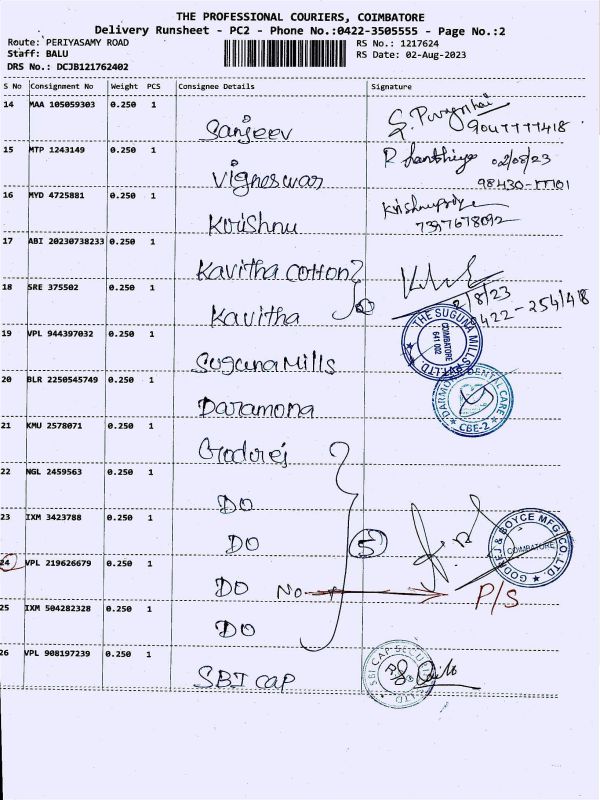 THE PROFESSIONAL COURIERS, COIMBATORE
Delivery Runsheet - PC2 - Phone No.:0422-3505555 - Page No.:2
Route: PERIYASAMY ROAD RS No.: 1217624
Staff: BALU RS Date: 02-Aug-2023
DRS No.: DCJB121762402
S No Consignment No Weight PCS Consignee Details Signature
14 MAA 105059303 0.250 1
Sanjeev
9047777418
15 MTP 1243149 0.250 1
Vigneswar
02/08/23
98430-
16 MYD 4725881 0.250 1
Krishnu
Krishnupriya
7397678092
17 ABI 20230738233 0.250 1
Kavitha cotton
18 SRE 375502 0.250 1
Kavitha
2/8/23
0422-254148
19 VPL 944397032 0.250 1
Suguna Mills
THE SUGUNA MILLS PVT. LTD.
COIMBATORE
641 002
20 BLR 2250545749 0.250 1
Daramona
DENTAL CARE
CBE-2
21 KMU 2578071 0.250 1
Godrej
22 NGL 2459563 0.250 1
DO
23 IXM 3423788 0.250 1
DO
5
GODREJ & BOYCE MFG. CO. LTD
COIMBATORE
24 VPL 219626679 0.250 1
DO No P/S
25 IXM 504282328 0.250 1
DO
26 VPL 908197239 0.250 1
SBI cap
SBI CAP